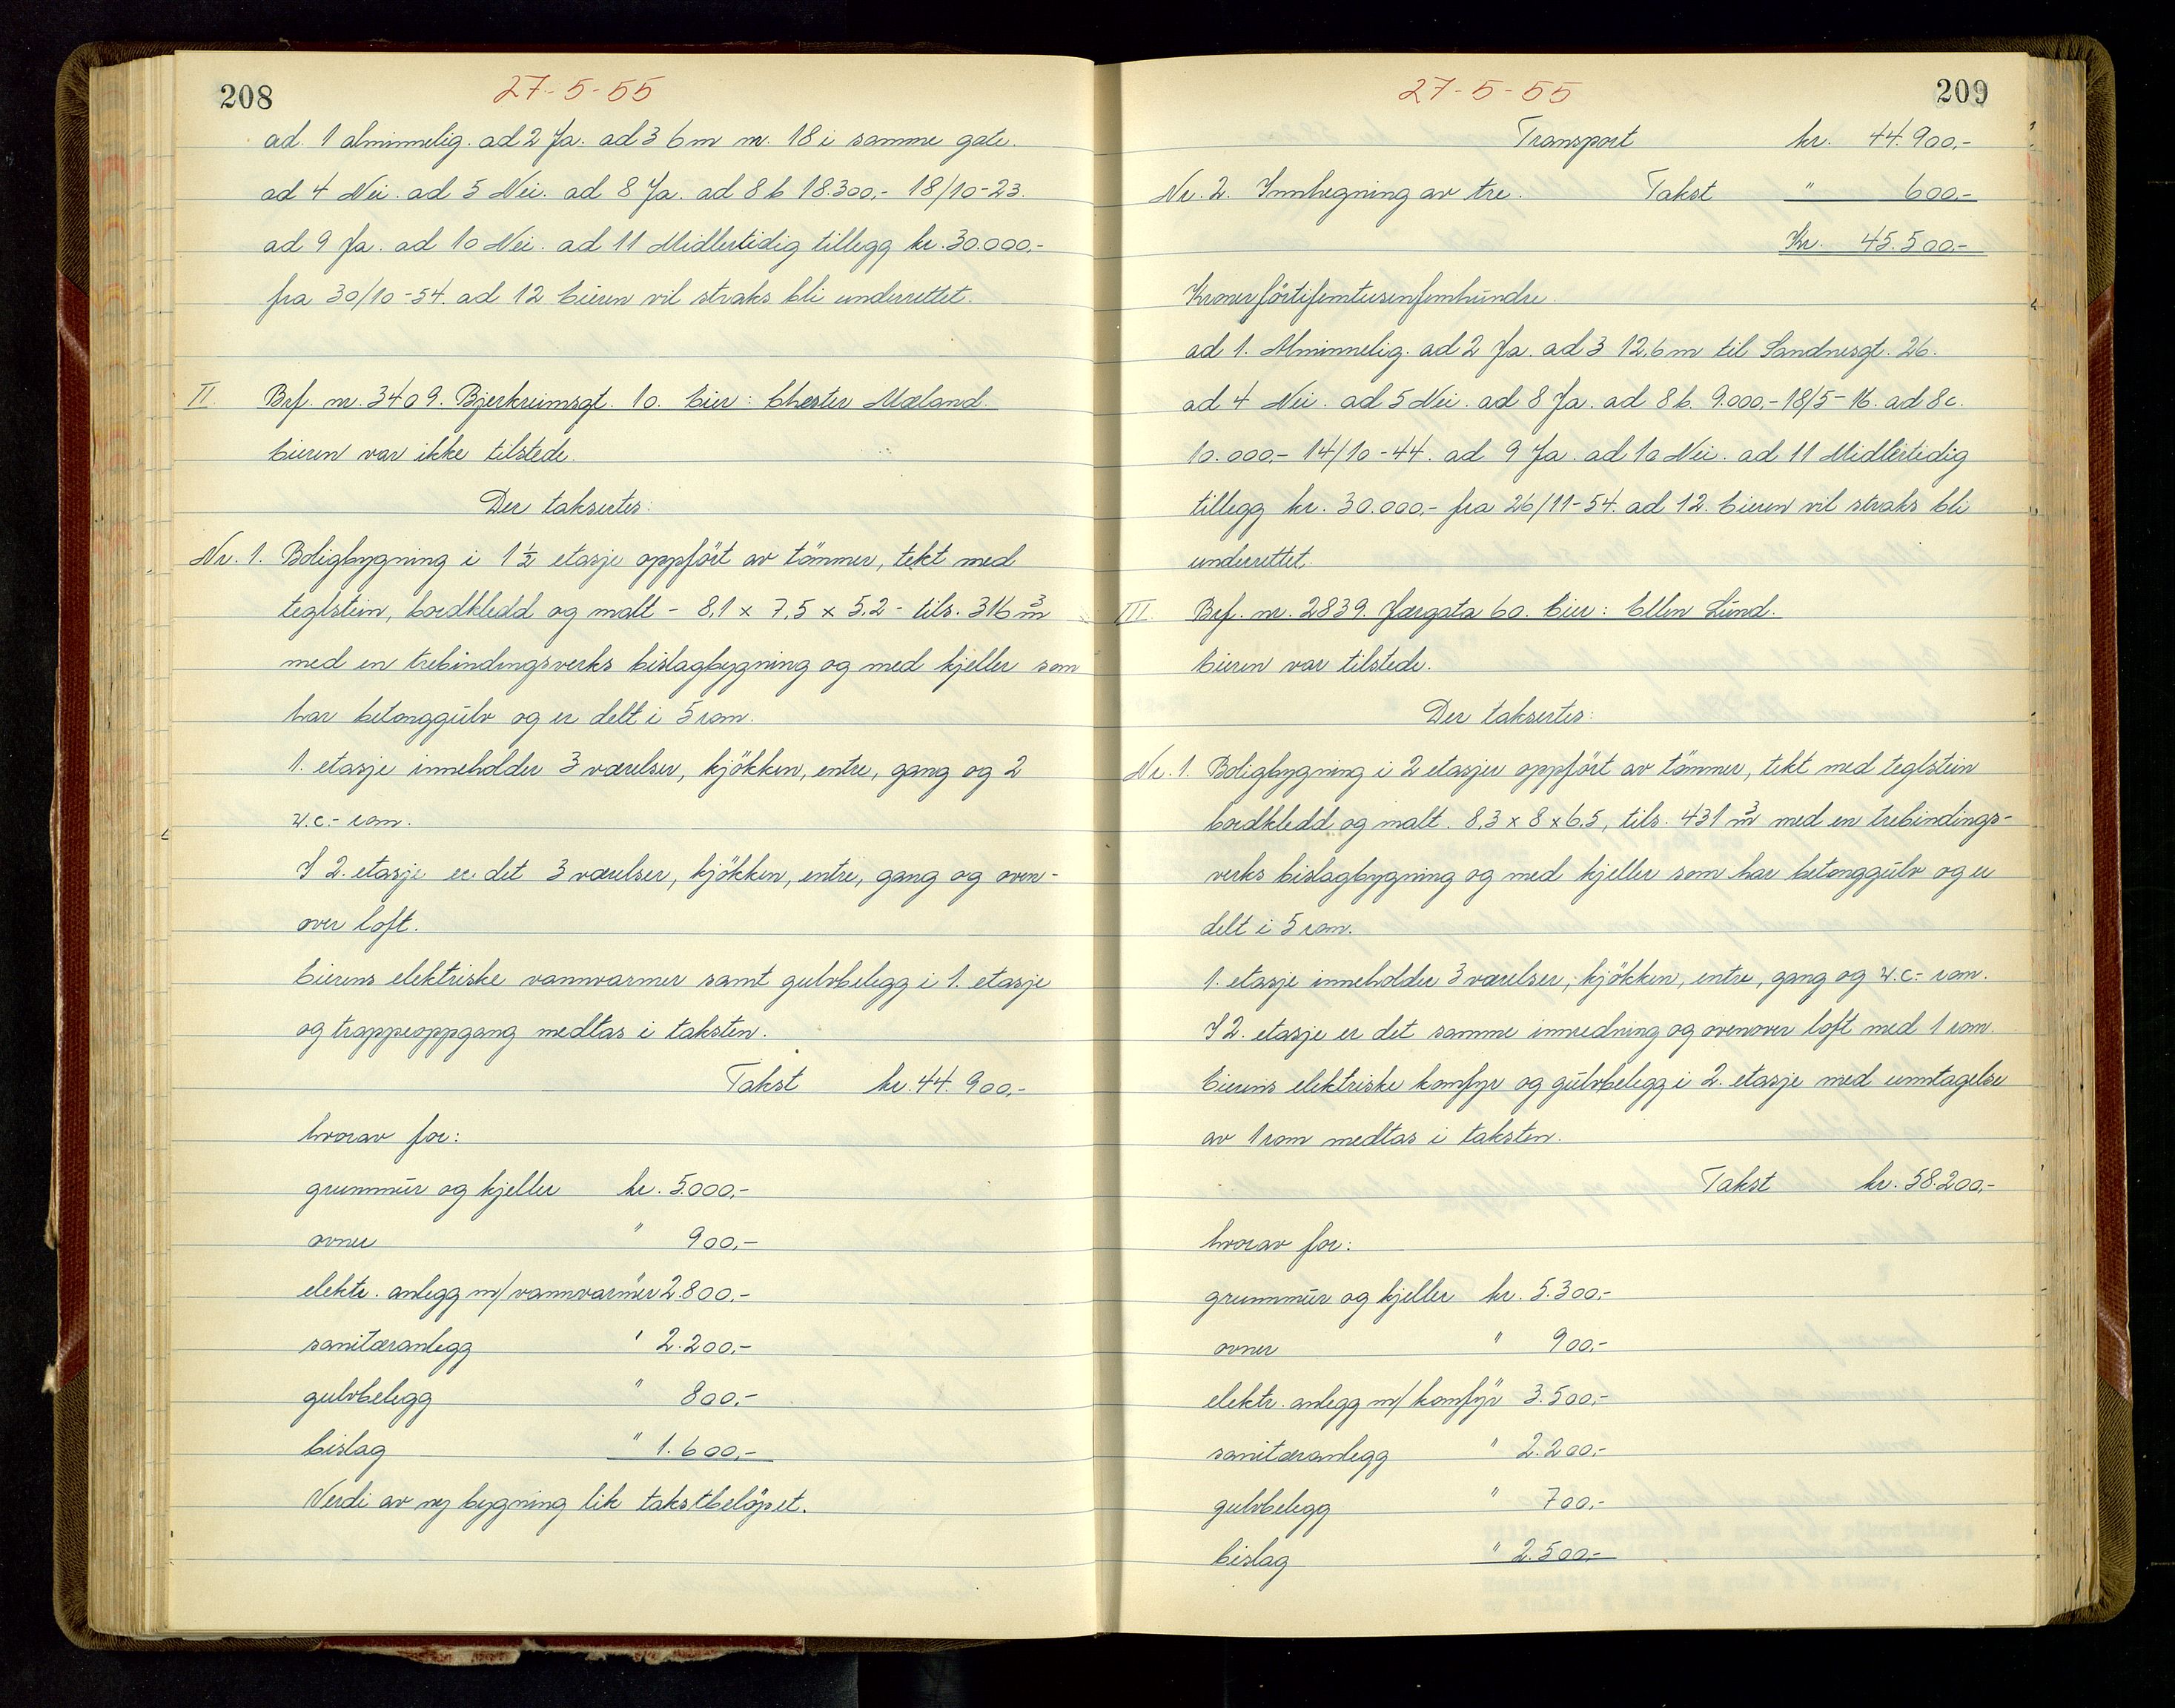 208
27-5-55
ad. 1 alminnelig. ad 2 Ja. ad 3 6 m nr. 18 i samme gate.
ad 4 Nei. ad 5 Nei. ad 8 Ja. ad 8 b 18.300,- 18/10-23.
ad 9 Ja. ad 10 Nei. ad 11 Midlertidig tillegg kr. 30.000,-
fra 30/10-54. ad 12 Eieren vil straks bli underrettet.
II. Brf. nr. 3409. Bjerkreimsgt. 10. Eier: Chester Mæland.
Eieren var ikke tilstede.
Der taksertes:
Nr. 1. Boligbygning i 1 ½ etasje oppfört av tömmer, tekt med
teglstein, bordkledd og malt - 8,1 x 7,5 x 5,2 - tils. 316 m³
med en trebindingsverks bislagbygning og med kjeller som
har betonggulv og er delt i 5 rom.
1. etasje inneholder 3 værelser, kjökken, entre, gang og 2
w.c.- rom.
I 2. etasje er det 3 værelser, kjökken, entre, gang og oven-
over loft.
Eierens elektriske vannvarmer samt gulvbelegg i 1. etasje
og trappeoppgang medtas i taksten.
Takst kr. 44.900,-
hvorav for:
grunnmur og kjeller kr. 5.000,-
ovner " 900,-
elektr. anlegg m/vannvarmer " 2.800,-
sanitæranlegg " 2.200,-
gulvbelegg " 800,-
bislag " 1.600,-
Verdi av ny bygning lik takstbelöpet.
27-5-55
209
Transport kr. 44.900,-
Nr. 2. Innhegning av tre. Takst " 600,-
Kr. 45.500,-
Kroner förtifemtusenfemhundre.
ad 1. Alminnelig. ad 2 Ja. ad 3 12,6 m til Sandnesgt. 26.
ad 4 Nei. ad 5 Nei. ad 8 Ja. ad 8 b. 9.000,- 18/5-16. ad 8 c.
10.000,- 14/10-44. ad 9 Ja. ad 10 Nei. ad 11 Midlertidig
tillegg kr. 30.000,- fra 26/11-54. ad 12. Eieren vil straks bli
underrettet.
III. Brf. nr. 2839. Jærgata 60. Eier: Ellen Lund.
Eieren var tilstede.
Der taksertes:
Nr. 1. Boligbygning i 2 etasjer oppfört av tömmer, tekt med teglstein
bordkledd og malt. 8,3 x 8 x 6,5, tils. 431 m³ med en trebindings-
verks bislagbygning og med kjeller som har betonggulv og er
delt i 5 rom.
1. etasje inneholder 3 værelser, kjökken, entre, gang og w.c.- rom.
I 2. etasje er det samme innredning og ovenover loft med 1 rom.
Eierens elektriske komfyr og gulvbelegg i 2. etasje med unntagelse
av 1 rom medtas i taksten.
Takst kr. 58.200,-
hvorav for:
grunnmur og kjeller kr. 5.300,-
ovner " 900,-
elektr. anlegg m/ komfyr " 3.500,-
sanitæranlegg " 2.200,-
gulvbelegg " 700,-
bislag " 2.500,-